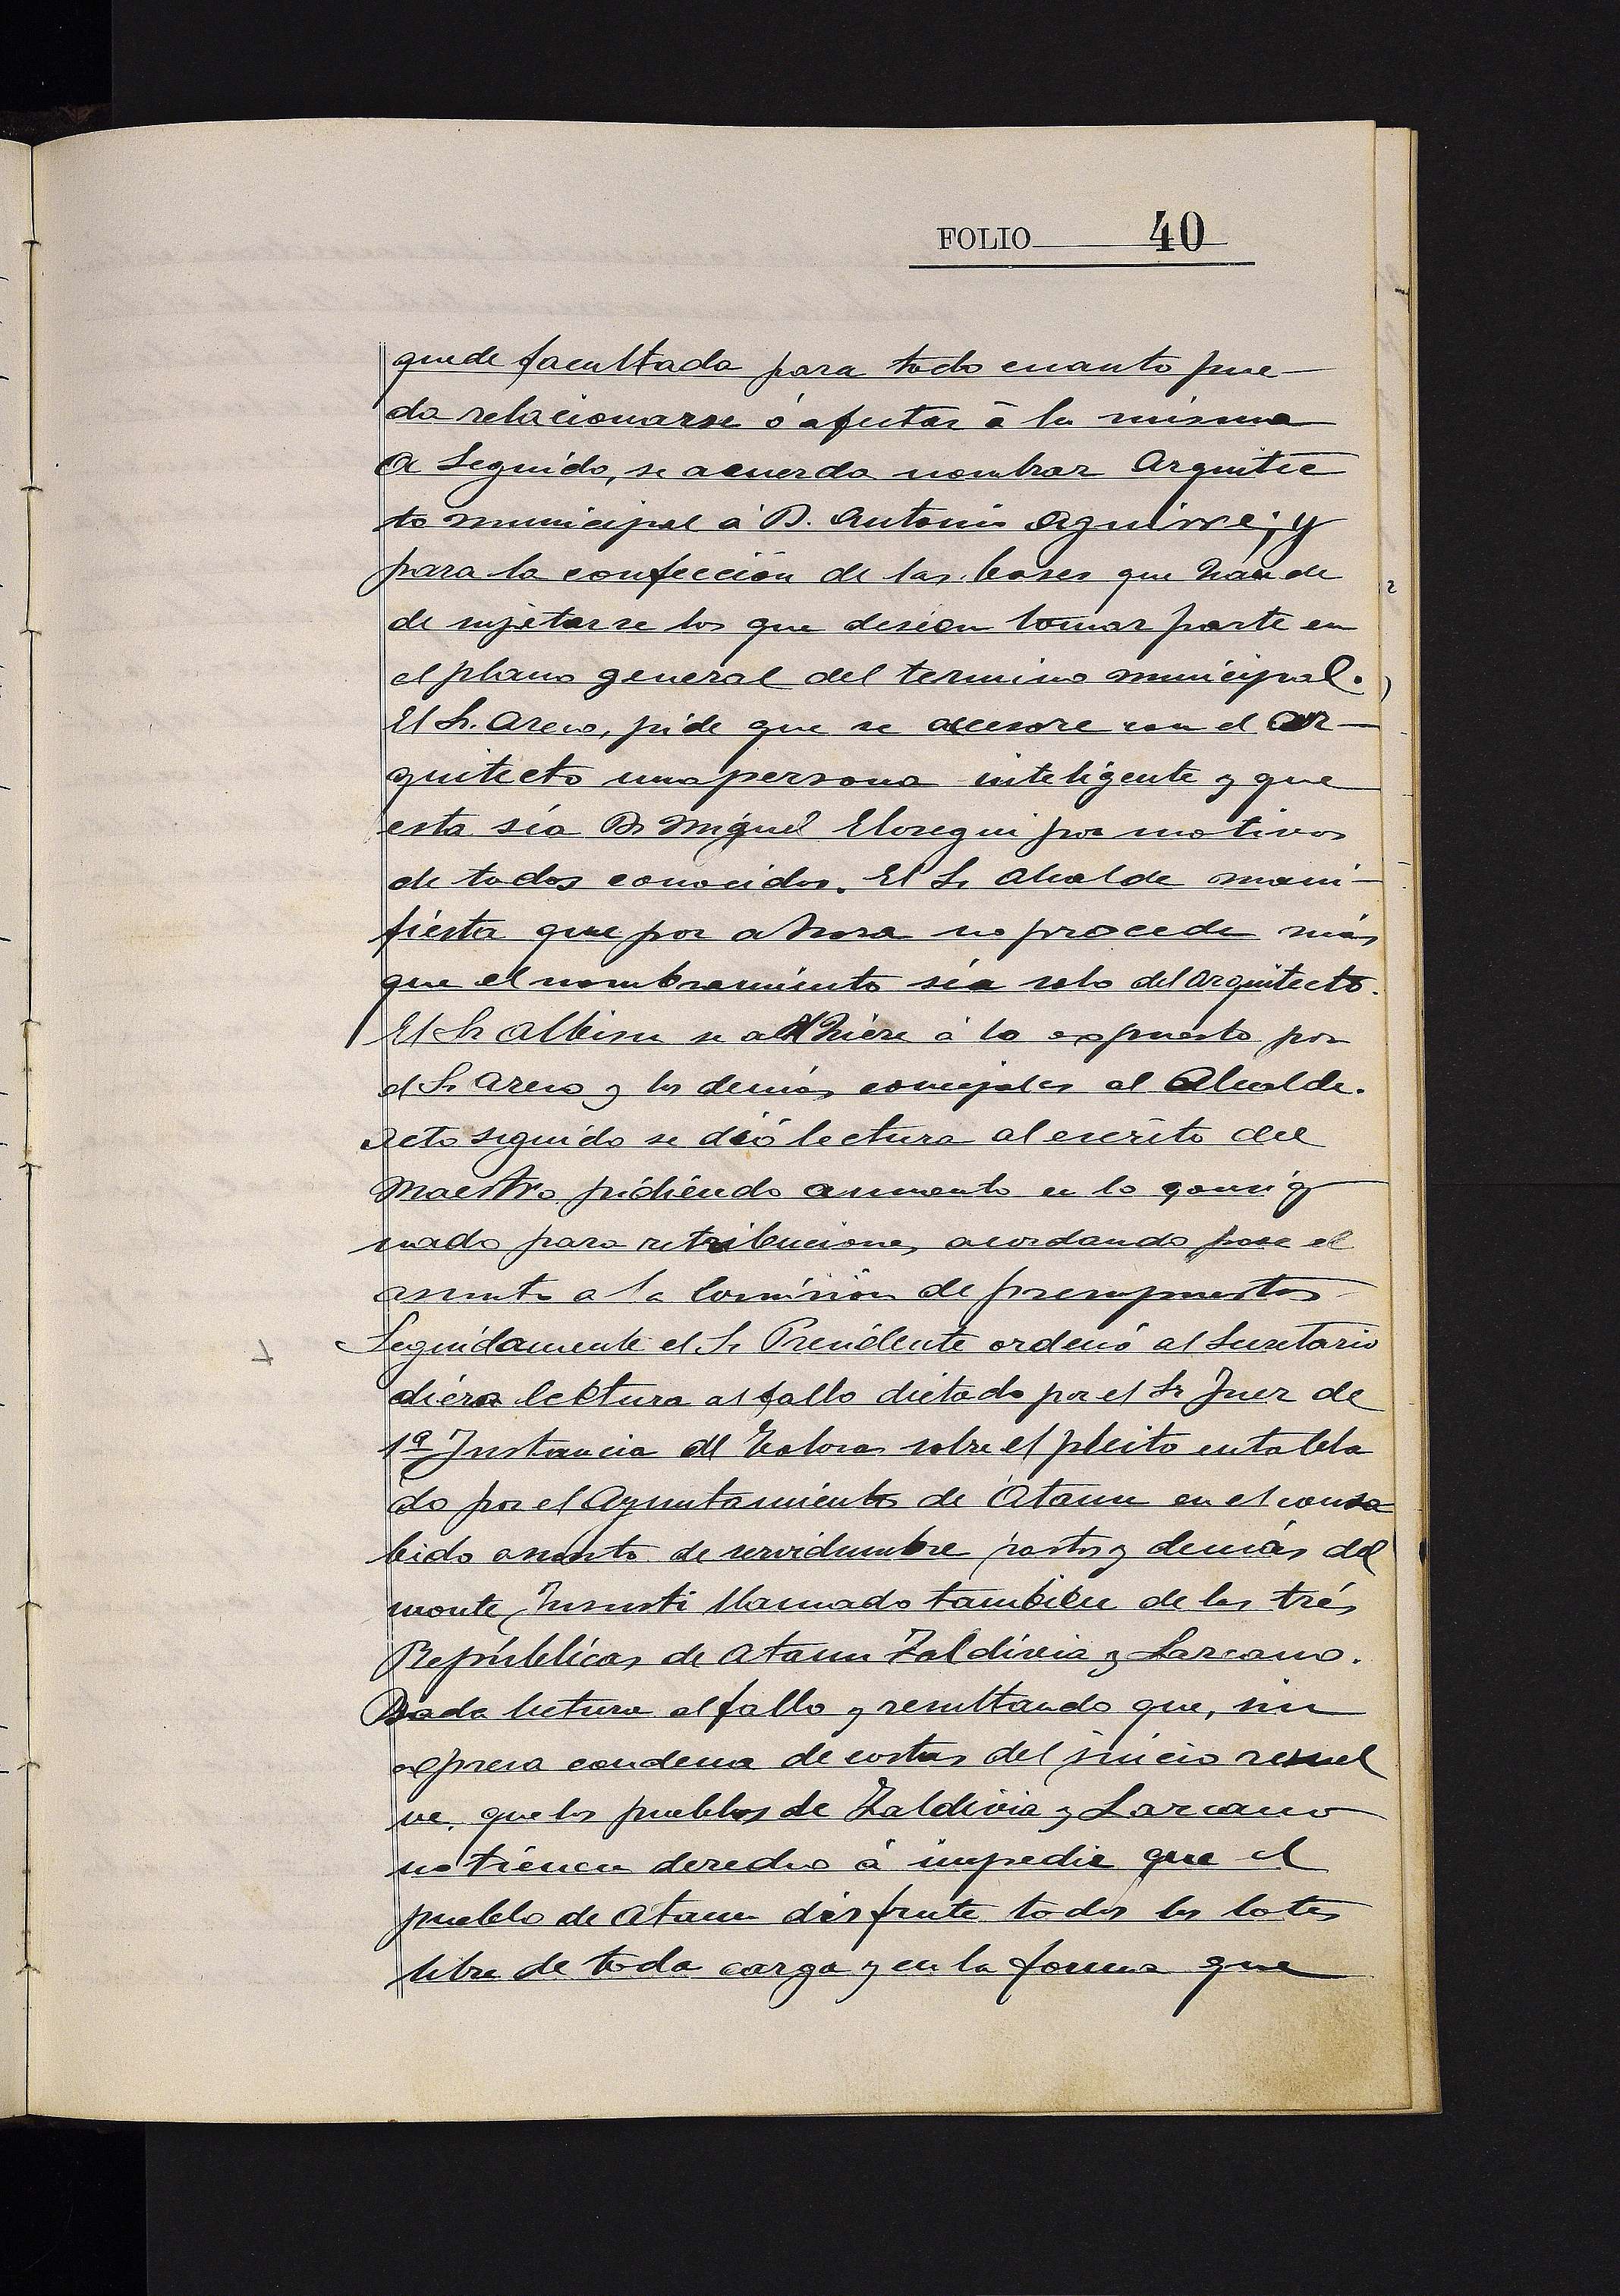 FOLIO 40
quede facultada para todo cuanto pue-
da relacionarse ó afectar á la misma
A Seguido, se acuerda nombrar Arquitec
to municipal á D. Antonio Aguirre; y
para la confección de las bases que han de
de sujetarse los que deseen tomar parte en
el plano general del termino municipal.
El Sr. Areso, pide que se acesore con el Ar-
quitecto una persona inteligente y que
esta sea D. Miguel Elosegui por motivos
de todos conocidos. El Sr Alcalde mani-
fiesta que por ahora no procede más
que el nombramiento sea solo del Arquitecto.
El Sr Albisu se adhiere á lo expuesto por
el Sr Areso y los demás concejales al Alcalde.
Acto seguido se dió lectura al escrito del
Maestro pidiendo aumento en lo consig
nado para retribuciones, acordando pase el
asunto a la Comisión de presupuestos
Seguidamente el Sr Presidente ordenó al Secretario
diera lectura al fallo dictado por el Sr Juez de
1ª Instancia de Tolosa sobre el pleito entabla
do por el Ayuntamiento de Ataun en el consa
bido asunto de servidumbre pastos y demás del
monte llamado también de las trés
Repúblicas de Ataun Zaldivia y Lazcano.
Dada lectura al fallo y resultando que, sin
expresa condena de costas del juicio resuel
ve. que los pueblos de Zaldivia y Lazcano
no tienen derecho á impedir que el
pueblo de Ataun disfrute todos los lotes
libre de toda carga y en la forma que